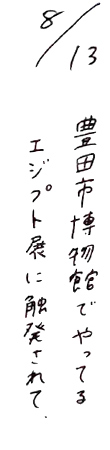 8/13
豊田市博物館でやってる
エジプト展に触発されて.